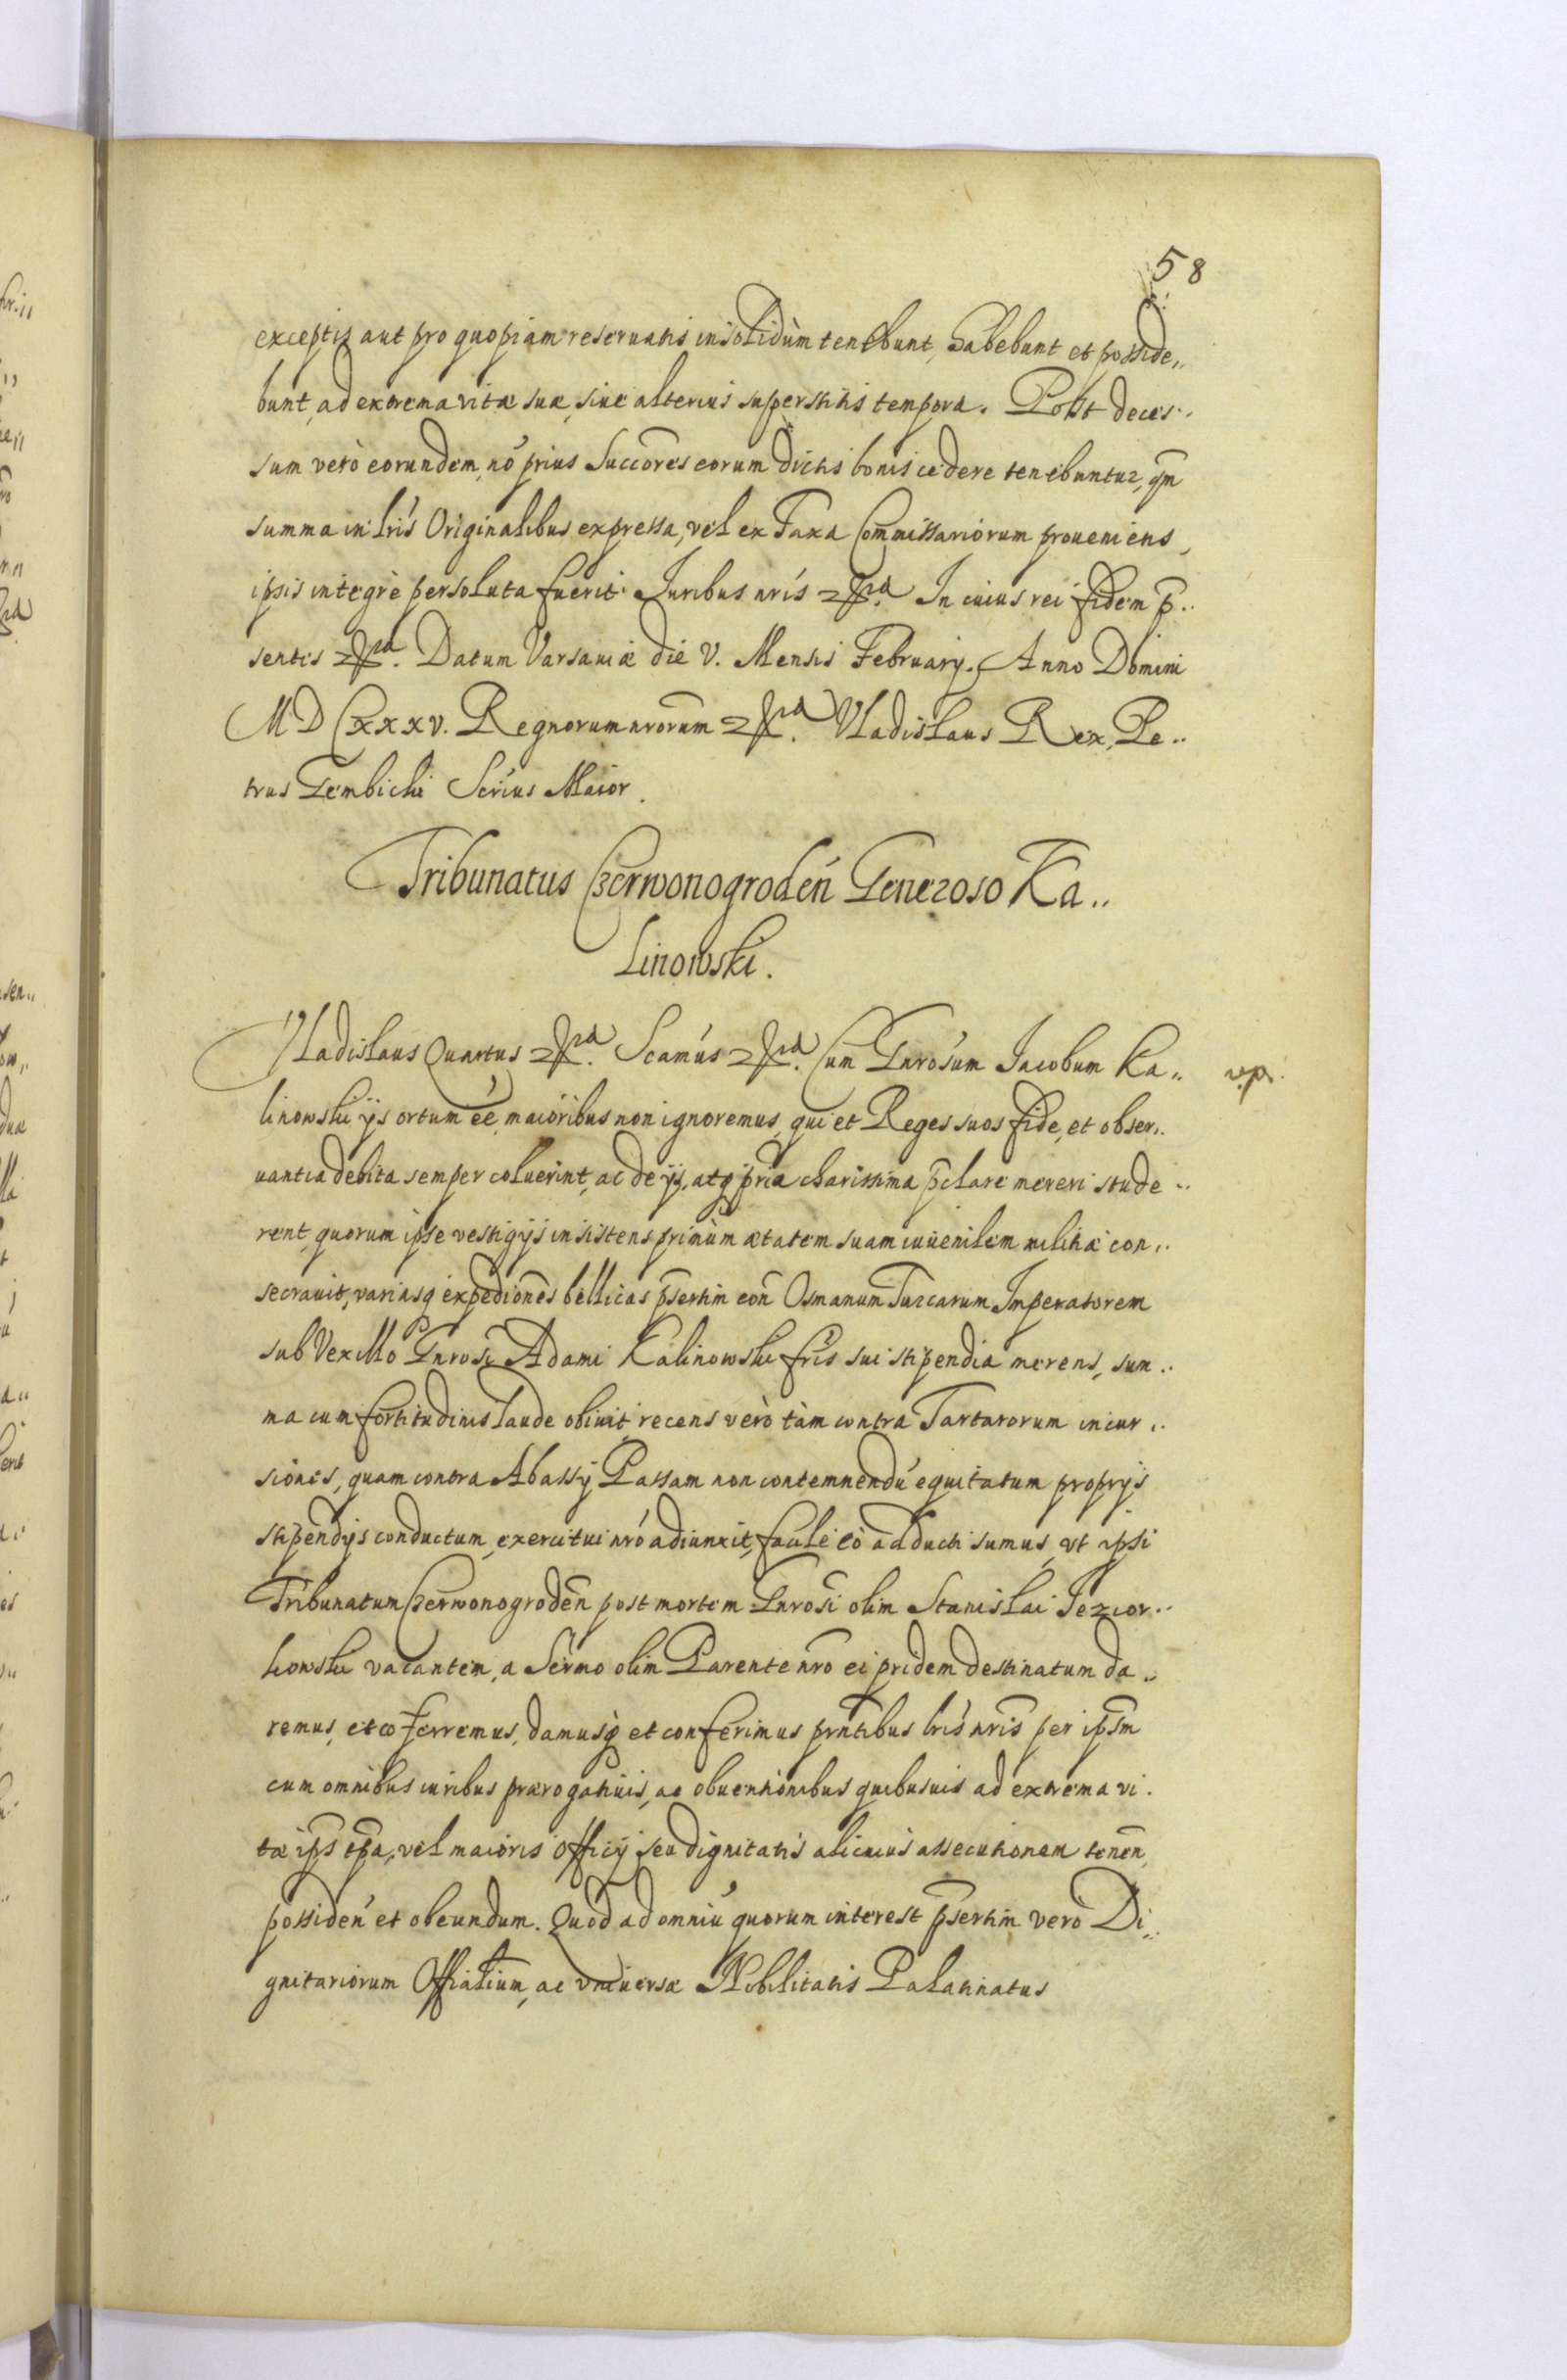 58
exceptis aut pro quopiam reseruatis in solidùm tenebunt, habebunt et posside,,
bunt, ad extrema vitæ suæ, siue alterius superstitis tempora. Post deces..
sum verò eorundem, nõ prius Succores eorum dictis bonis cedere tenebuntur, qm̃
summa in lris Originalibus expressa, vel ex Taxa Commissariorum proueniens,
ipsis integrè persoluta fuerit. Juribus nris etc. In cuius rei fidem p̃..
sentes etc. Datum Varsauiæ die V. Mensis February. Anno Domini
MDCxxxv. Regnorum nrorum etc. Vladislaus Rex, Pe..
trus Gembicki Scrius Maior.
Tribunatus Czerwonogroden̄ Generoso Ka..
linowski.
Vladislaus Quartus etc. Scamus etc. Cum Gnrosum Jacobum Ka..
linowski ijs ortum ẽe, maioribus non ignoremus, qui et Reges suos fide, et obser..
uantia debita semper coluerint, ac de ijs, atq pria charissima p̃clare mereri stude..
rent, quorum ipse vestigijs insistens primùm ætatem suam iuuenilem militiæ con..
secrauit, variasq expediones bellicas p̃sertim con̄ Osmanum Turcarum Imperatorem
sub Vexillo Gnrosi Adami Kalinowski fris sui stipendia merens, sum..
ma cum fortitudinis laude obiuit, recens verò tàm contra Tartarorum incur..
siones, quam contra Abassy Passam non contemnendũ equitatum proprijs
stipendijs conductum, exercitui nrõ adiunxit, facile eò adducti sumus, vt ipsi
Tribunatum Czerwonogroden̄ post mortem Gnrosi olim Stanislai Jezior..
kowski vacantem, a Sermo olim Parente nro ei pridem destinatum da..
remus, et coferremus, damusq et conferimus pntibus lris nris per ipsm
cum omnibus iuribus prærogatiuis, ac obuentionibus quibusuis ad extrema vi.
tæ ips tpa, vel maioris officij seu dignitatis alicuius assecutionem tenen̄
possiden̄ et obeundum. Quod ad omniũ quorum interest p̃sertim vero Di,,
gnitariorum Offialium, ac vniuersæ Nobilitatis Palatinatus